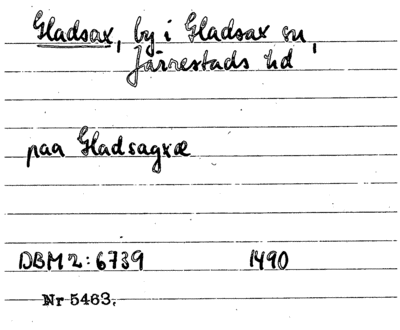 Gladsax, by i Gladsax sn,
Järrestads hd
paa Gladsagxæ
DBM 2: 6739 1490
Nr 5463.